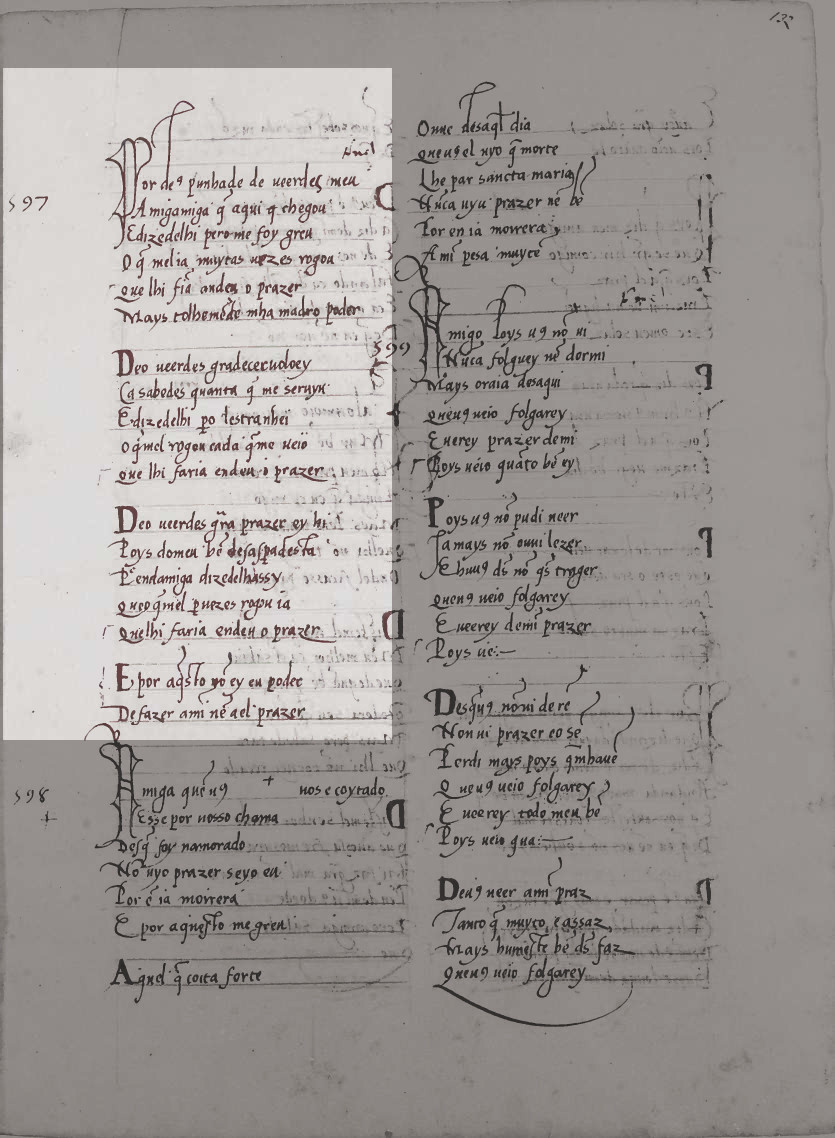 132
597
Por de9 punhade de ueerdes meu
Amigamiga q̃ aqui q̃ chegou
Edizedelhi pero me foy greu
O q̃ mel ia muytas uezes rogou
que lhi fia endeu o prazer
Mays tolhemẽde mha madro poder
Deo ueerdes gradecer uoloey
Ca sabedes quanta q̃ me seruyu
Edizedelhi po lestranhei
o q̃mel rogou cada q̃me ueio
que lhi faria endeu o prazer
Deo ueerdes grã prazer ey hi
Poys domeu bẽ desaspadesta
Pẽendamiga dizedelhassy
que o q̃mel puezes rogou ia
Quelhi faria endeu o prazer
E por aq̃sto nõ ey eu poder
De fazer ami nẽ ael prazer
598
Amiga quẽ u9 + uos e coytado
Esse por uosso chama
Desq̃ foy namorado
Nõ uyo prazer seyo eu
Por ẽ ia moirera
E por aquesto me greu
Aquel q̃ coita forte
Ouue desaq̃l dia
que u9 el uyo q̃ morte
Lhe par sancta maria
Nũca uyu prazer nẽ bẽ
Por en ia moirera
A mĩ pesa muyte
599
Amigo Poys u9 nõ ui
Nũca folguey nẽ dormi
Mays ora ia desaqui
que u9 ueio folgarey
E uerey prazer demi
Poys ueio quãto bẽ ey
Poys u9 nõ pudi ueer
Jamays nõ ouui lezer
E huu9 ds̃ nõ q̃s trager
que u9 ueio folgarey
E ueerey demi prazer
Poys ue:-
Desq̃ u9 nõ ui de rẽ
Non ui prazer eo sẽ
Perdi mays poys q̃mhauẽ
Que u9 ueio folgarey
E ueerey todo meu bẽ
Poys ueio qua:-
Deu9 ueer ami praz
Tanto q̃ muyto, e assaz
Mays hu meste bẽ ds̃ faz
Que u9 ueio folgarey